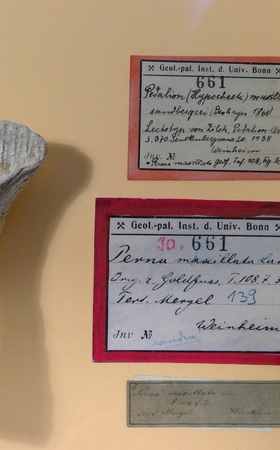 ⚒ Geol.-pal. Inst. d. Univ. Bonn ⚒
661
Pedalion (Hypochaeta) maxill
sandbergeri (Deshayes 1861)
Lectotyp von Zilch, Pedalion
S. 370. Senckenbergiana 20. 1938
Weinheim
Inv. №
= Perna maxillata Goldf. Taf. 108, Fig.
⚒ Geol.-pal. Inst. d. Univ. Bonn ⚒
30. 661
Perna maxillata
Orig. z. Goldfuss, T. 108. f. 3
Tert. Mergel 139
Weinheim
Inv №
Perna maxillata
Tert. Mergel